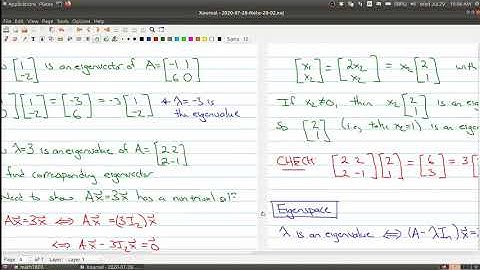 Applications Places
Xournal - 2020-07-28-Note-28-02.xoj
Wed Jul 29 10:06 AM
File Edit View Journal Tools Options Help
[1 -2] is an eigenvector of A = [-1 1 6 0]
[1 -2] = [-3 6] = -3 [1 -2] & λ = -3 is
the eigenvalue
λ=3 is an eigenvalue of A = [2 2 2 -1]
find corresponding eigenvector
to show Ax⃗ = 3x⃗ has a nontrivial sol
Ax⃗ = 3x⃗ ⟺ Ax⃗ = (3I₂)x⃗
⟺ Ax⃗ - 3I₂x⃗ = 0⃗
[x₁ x₂] = [2x₂ x₂] = x₂ [2 1] with
If x₂ ≠ 0, then x₂ [2 1] is an
So [2 1] (i.e, take x₂=1) is an
CHECK: [2 2 2 -1] [2 1] = [6 3] = 3
Eigenspace
λ is an eigenvalue ⟺ (A - λIₙ)x⃗ =
Page 4 of 7 Layer: Layer 1